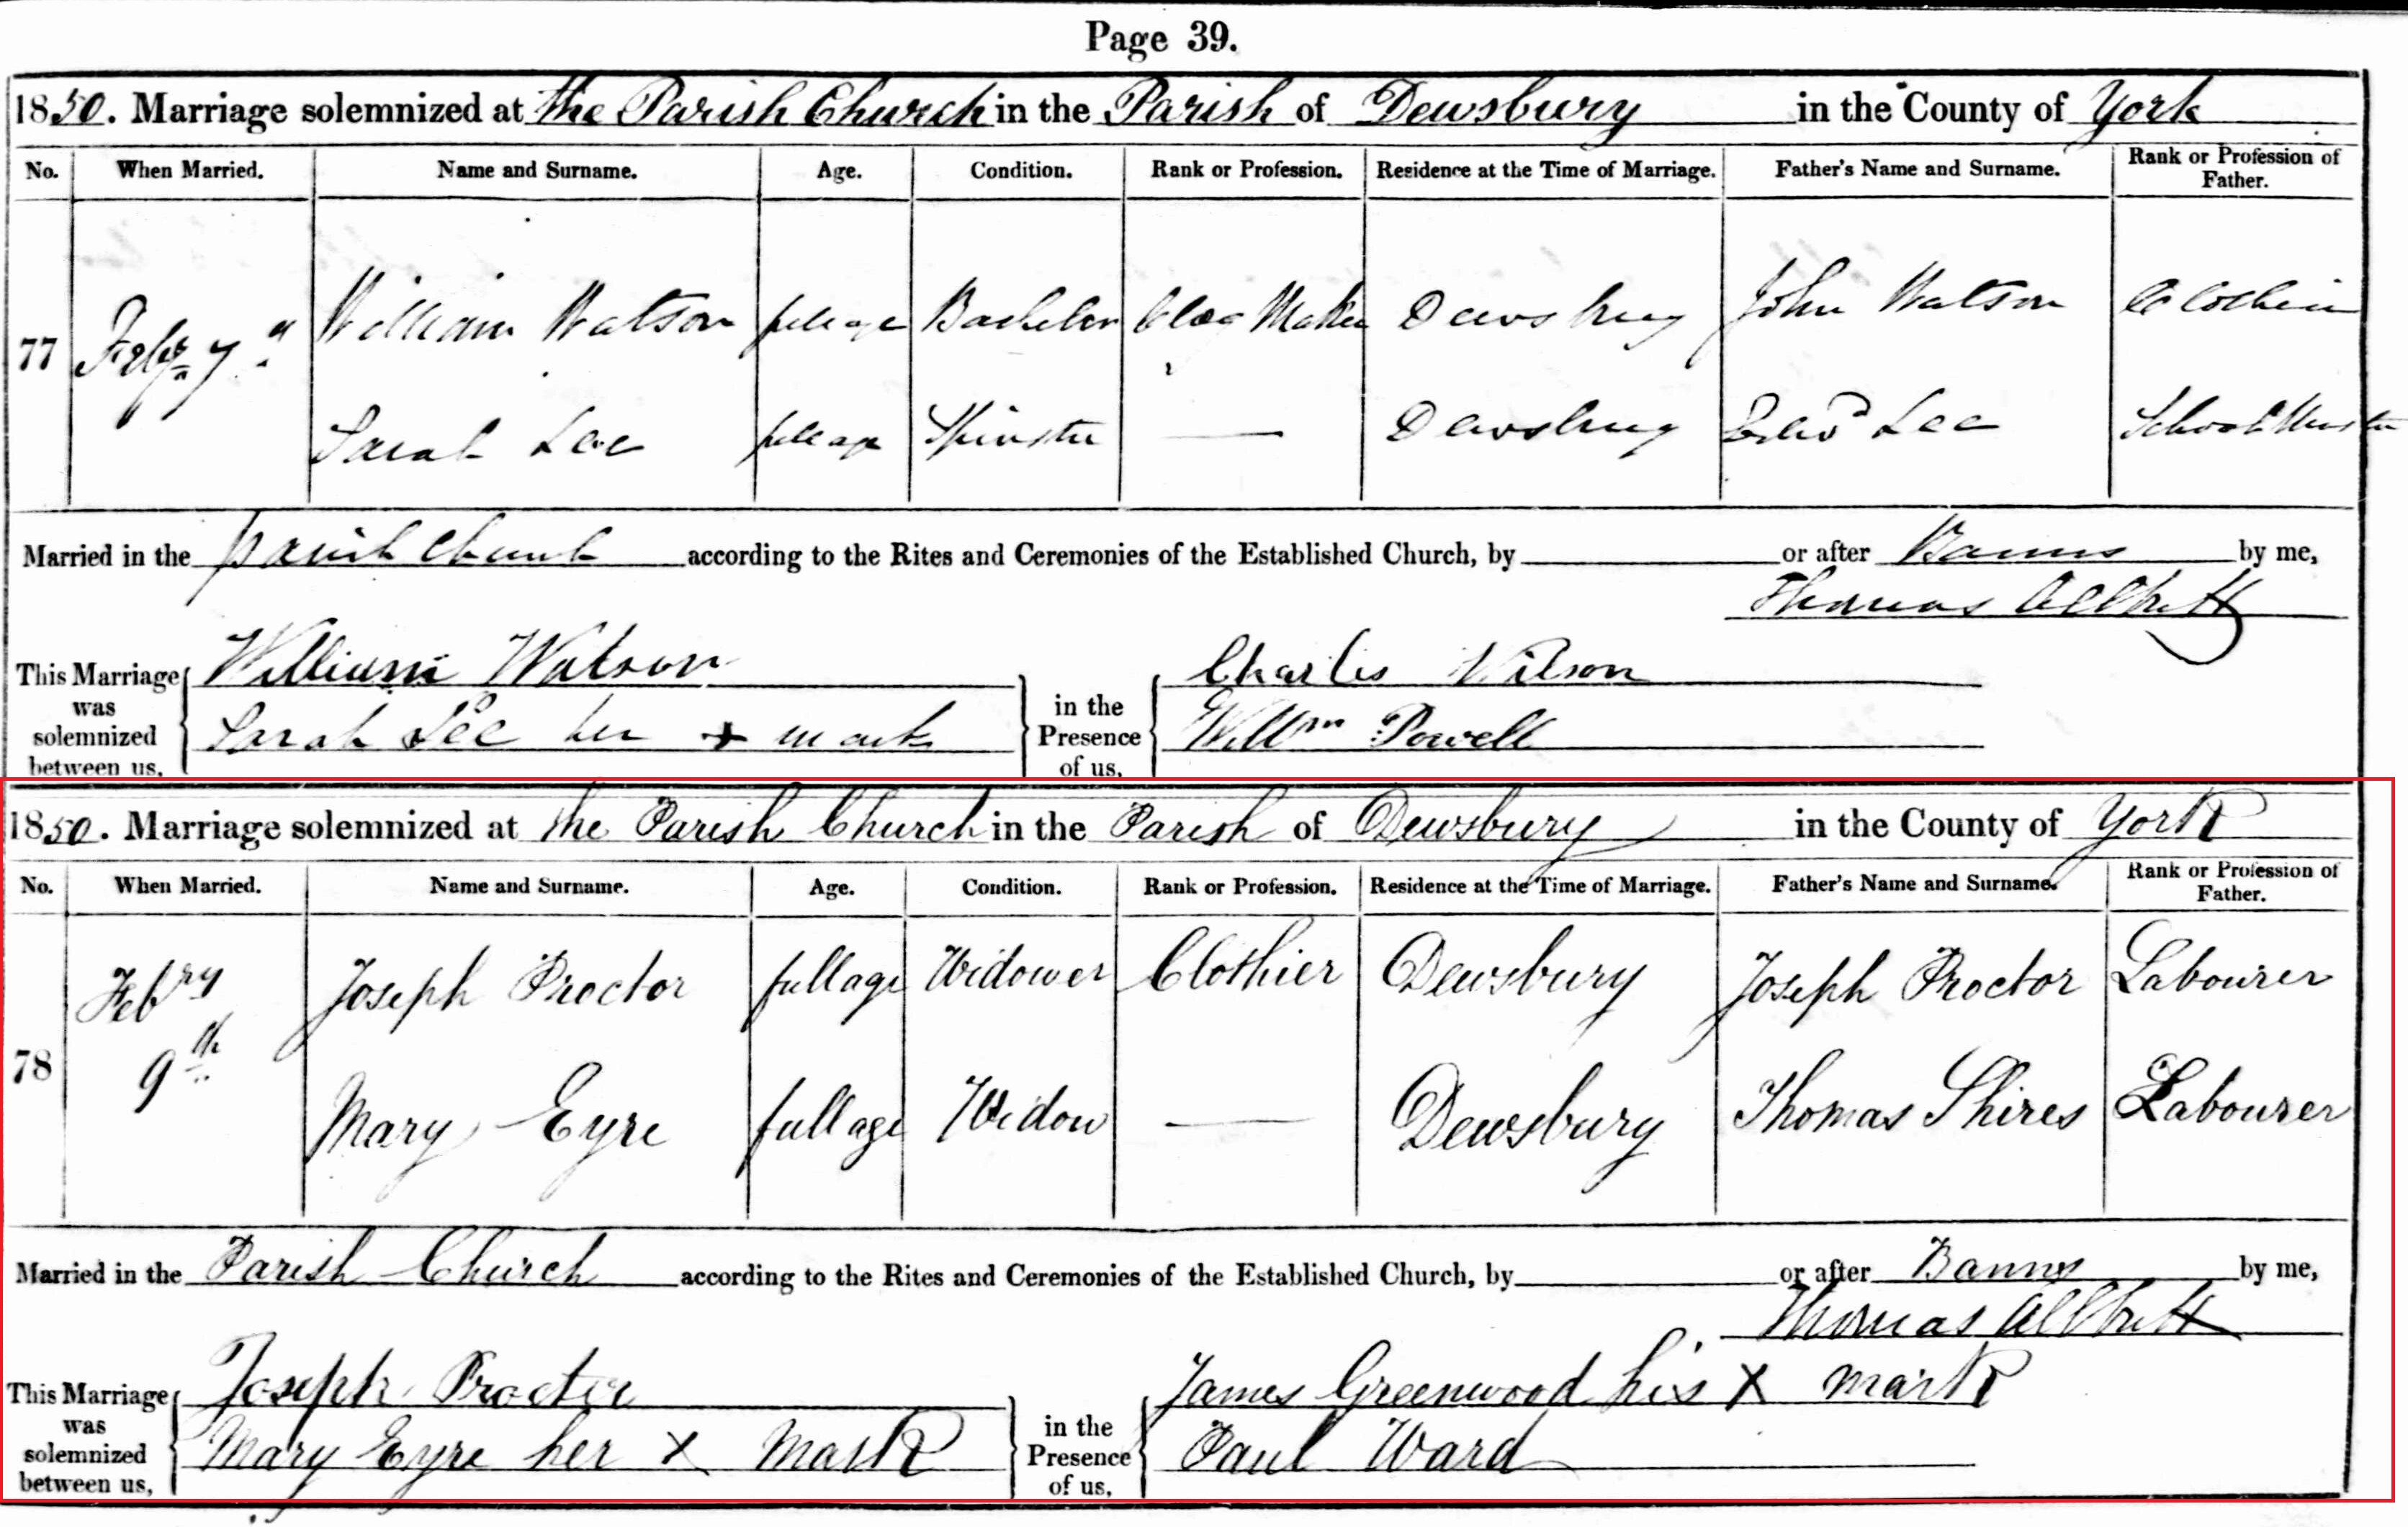 Page 39.
1850. Marriage solemnized at the Parish Church in the Parish of Dewsbury in the County of York
No. When Married. Name and Surname. Age. Condition. Rank or Profession. Residence at the Time of Marriage. Father's Name and Surname. Rank or Profession of Father.
77 Feby 7 William Watson full age Bachelor Clog Maker Dewsbury John Watson Clothier
Sarah Lee full age Spinster — Dewsbury Edwd Lee School Master
Married in the parish church according to the Rites and Ceremonies of the Established Church, by or after Banns by me,
Thomas Allbutt
This Marriage was solemnized between us, William Watson in the Presence of us, Charles Wilson
Sarah Lee her + mark Willm Powell
1850. Marriage solemnized at the Parish Church in the Parish of Dewsbury in the County of York
No. When Married. Name and Surname. Age. Condition. Rank or Profession. Residence at the Time of Marriage. Father's Name and Surname. Rank or Profession of Father.
78 Febry 9th Joseph Proctor full age Widower Clothier Dewsbury Joseph Proctor Labourer
Mary Eyre full age Widow — Dewsbury Thomas Shires Labourer
Married in the Parish Church according to the Rites and Ceremonies of the Established Church, by or after Banns by me,
Thomas Allbutt
This Marriage was solemnized between us, Joseph Procter in the Presence of us, James Greenwood his X mark
Mary Eyre her X mark Paul Ward